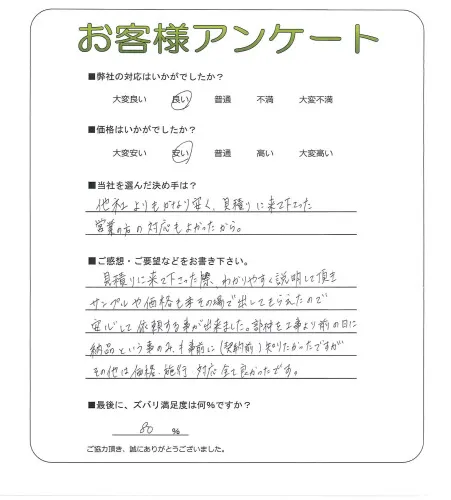 お客様アンケート
■弊社の対応はいかがでしたか？
大変良い 良い 普通 不満 大変不満
■価格はいかがでしたか？
大変安い 安い 普通 高い 大変高い
■当社を選んだ決め手は？
他社よりもかなり安く、見積りに来て下さった
営業の方の対応もよかったから。
■ご感想・ご要望などをお書き下さい。
見積りに来て下さった際、わかりやすく説明して頂き
サンプルや価格もその場で出してもらえたので
安心して依頼する事が出来ました。部材を工事より前の日に
納品という事のみ事前に(契約前)知りたかったですが
その他は価格、施行、対応全て良かったです。
■最後に、ズバリ満足度は何％ですか？
80 ％
ご協力頂き、誠にありがとうございました。